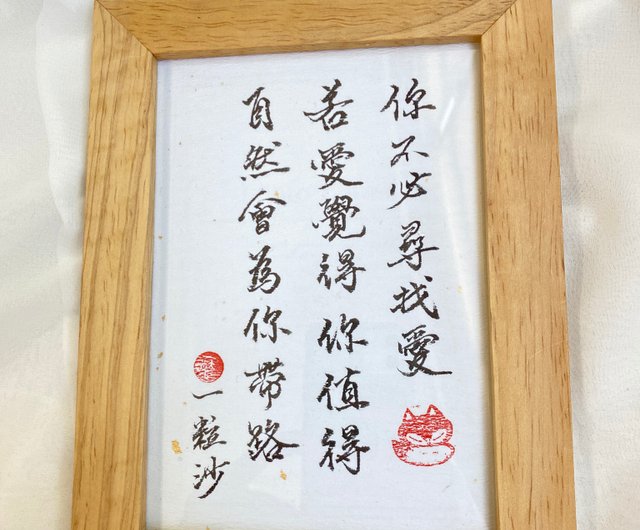 你不必尋找愛
若愛覺得你值得
自然會為你帶路
一粒沙